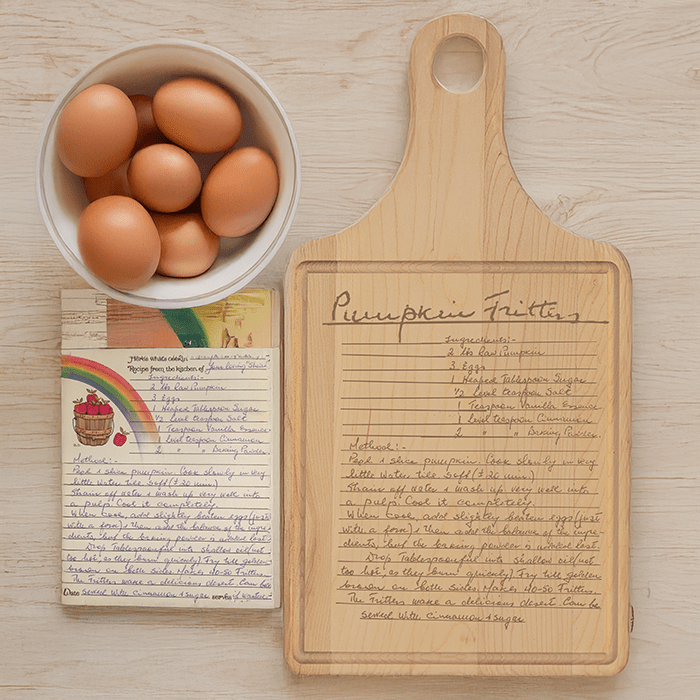 Here's what's cookin' Pumpkin Fritters
Recipe from the kitchen of Your loving
Ingredients:-
2 lbs Raw Pumpkin
3 Eggs
1 Heaped Tablespoon Sugar
1/2 Level teaspoon Salt
1 Teaspoon Vanilla Essence
1 Level teaspoon Cinnamon
2 " " Baking Powder
Method:-
Peel & slice pumpkin. Cook slowly in very
little water till soft (± 20 min)
Strain off water & mash up very well into
a pulp. Cool it completely.
When Cool, add slightly beaten eggs (just
with a fork) & then add the balance of the ingre-
dients, but the baking powder is added last.
Drop Tablespoonful into shallow oil (not
too hot, as they burn quickly) Fry till golden
brown on both sides. Makes 40-50 Fritters.
The Fritters make a delicious desert. Can be
served with cinnamon & sugar serves
Pumpkin Fritters
Ingredients:-
2 lbs Raw Pumpkin
3 Eggs
1 Heaped Tablespoon Sugar
1/2 Level teaspoon Salt
1 Teaspoon Vanilla Essence
1 Level teaspoon Cinnamon
2 " " Baking Powder
Method:-
Peel & slice pumpkin. Cook slowly in very
little water till soft (± 20 min)
Strain off water & mash up very well into
a pulp. Cool it completely.
When Cool, add slightly beaten eggs (just
with a fork) & then add the balance of the ingre-
dients, but the baking powder is added last.
Drop Tablespoonful into shallow oil (not
too hot, as they burn quickly) Fry till golden
brown on both sides. Makes 40-50 Fritters.
The Fritters make a delicious desert. Can be
served with cinnamon & sugar